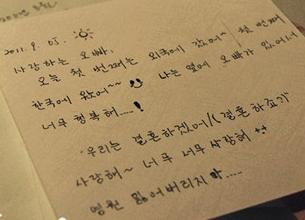 2011. 9. 05.
사랑하는 오빠,
오늘 첫 번째는 외국에 갔어~ 첫 번째
한국에 왔어~~ 나는 옆에 오빠가 있어서
너무 행복해....!
우리는 결혼하겠어!(결혼하죠?
사랑해~ 너무 너무 사랑해 ++
영원 잃어버리지 마.....